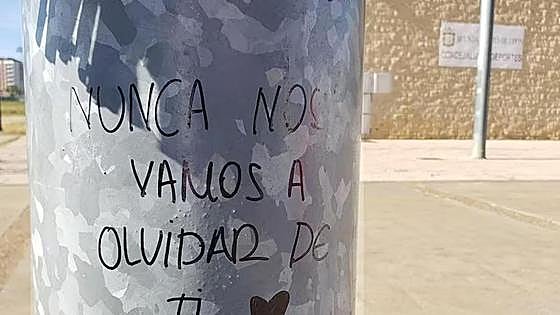 NUNCA NOS
VAMOS A
OLVIDAR DE
TI
CONCEJALÍA DE DEPORTES